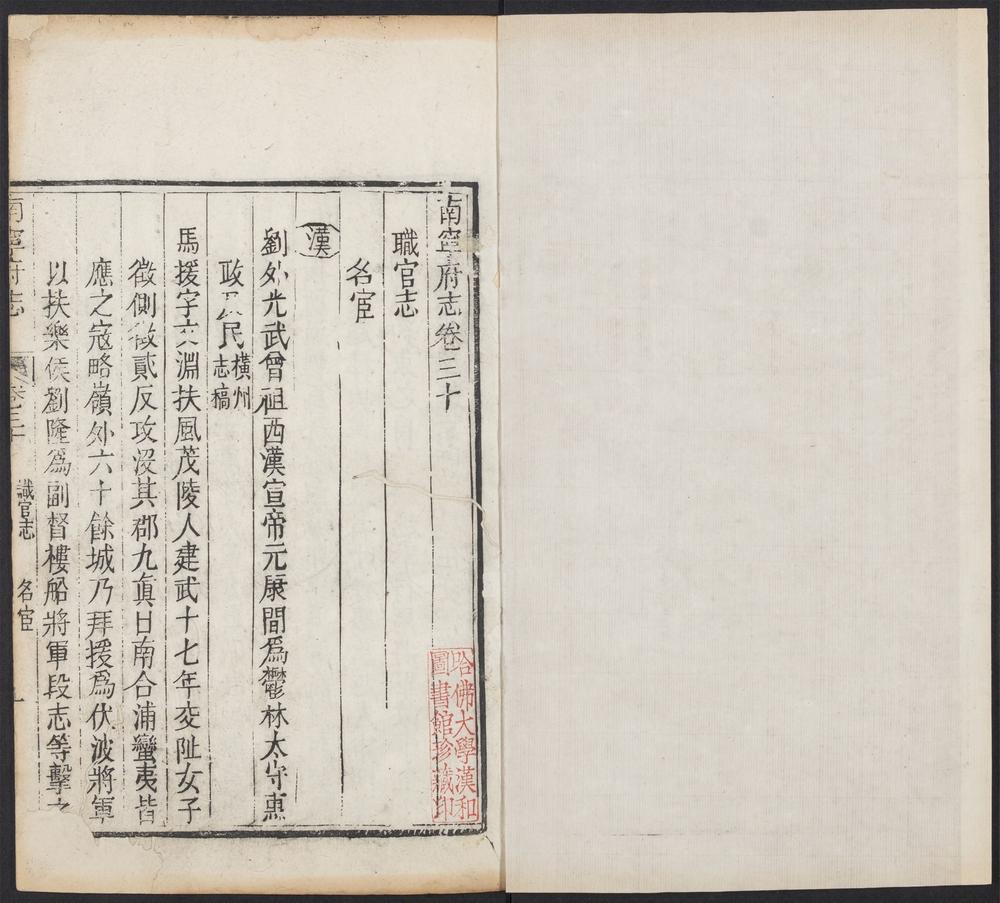 南寧府志卷三十
職官志
名宦
漢
劉外光武曾祖西漢宣帝元康間爲鬱林太守惠
政及民橫州志稿
馬援字文淵扶風茂陵人建武十七年交阯女子
徵側徵貳反攻沒其郡九眞日南合浦蠻夷皆
應之寇略嶺外六十餘城乃拜援爲伏波將軍
以扶樂侯劉隆爲副督樓船將軍段志等擊之
南寧府志 卷三十 職官志 名宦 一
哈佛大學漢和
圖書館珍藏印